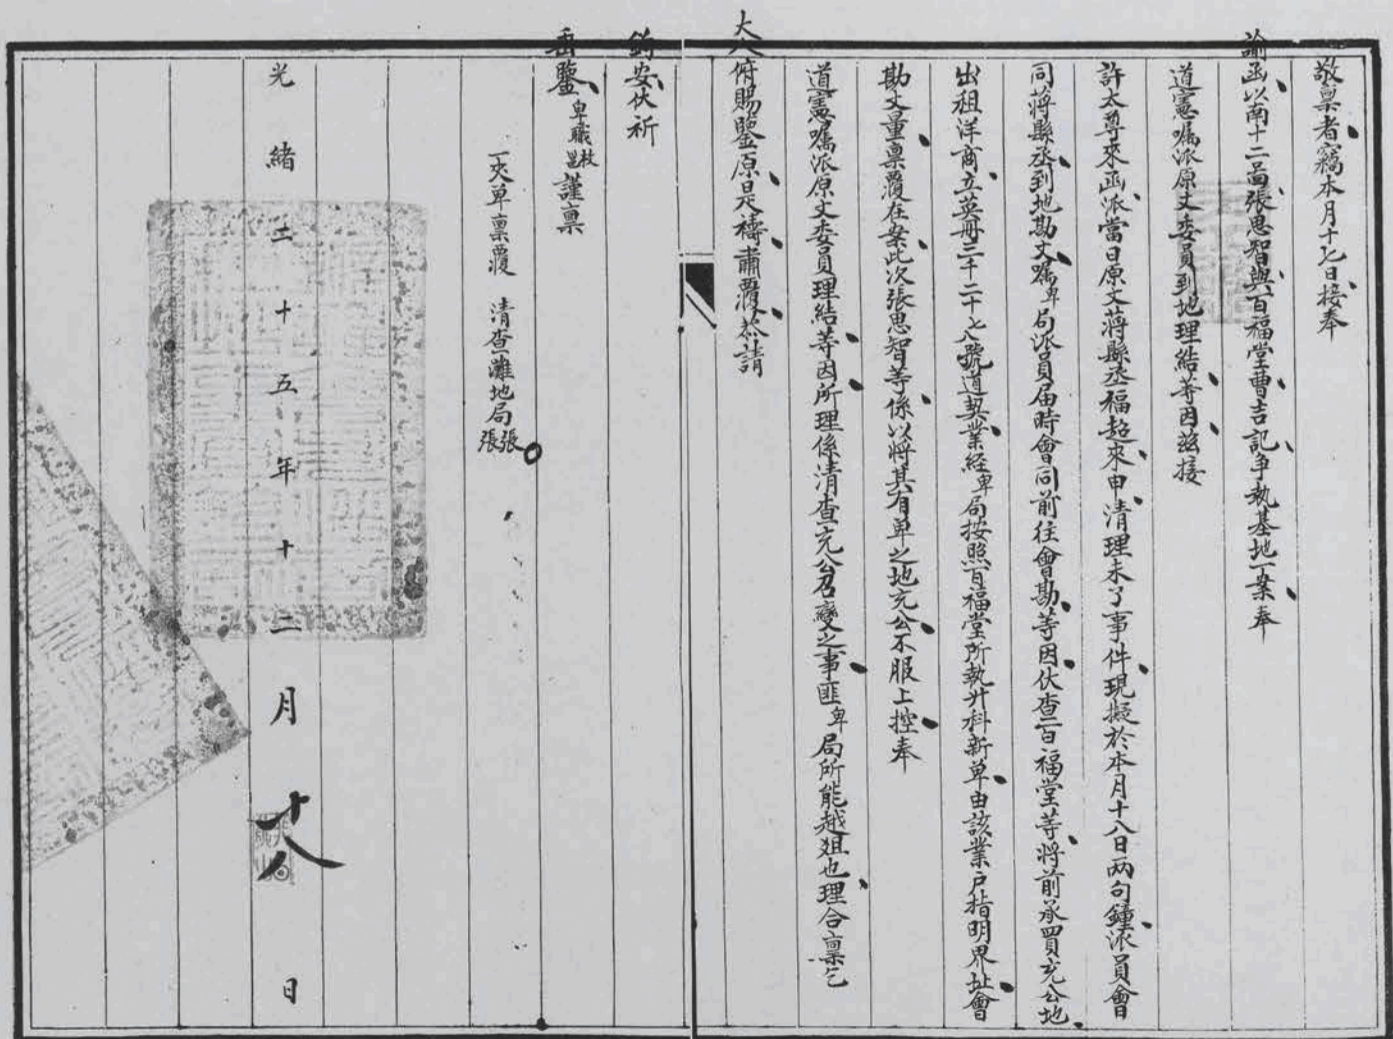 敬稟者竊本月十七日接奉
諭函以南十二啚張思智與百福堂曹吉記爭執基地一案奉
道憲囑派原丈委員到地理結等因兹接
許太尊來函派當日原丈蔣縣丞福超來申清理未了事件現擬於本月十八日兩句鐘派員會
同蔣縣丞到地勘丈囑卑局派員届時會同前往會勘等因伏查百福堂等將前承買充公地
出租洋商立英册三千二十七八號道契業經卑局按照百福堂所執升科新单由該業户指明界址會
勘丈量稟覆在案此次張思智等係以將其有单之地充公不服上控奉
道憲囑派原丈委員理結等因所理係清查充公召變之事匪卑局所能越俎也理合稟乞
大人俯賜鑒原是禱肅覆恭請
鈞安伏祈
垂鑒卑職謹稟
一夾单稟覆 清查灘地局張張
光緒二十五年十二月十八日